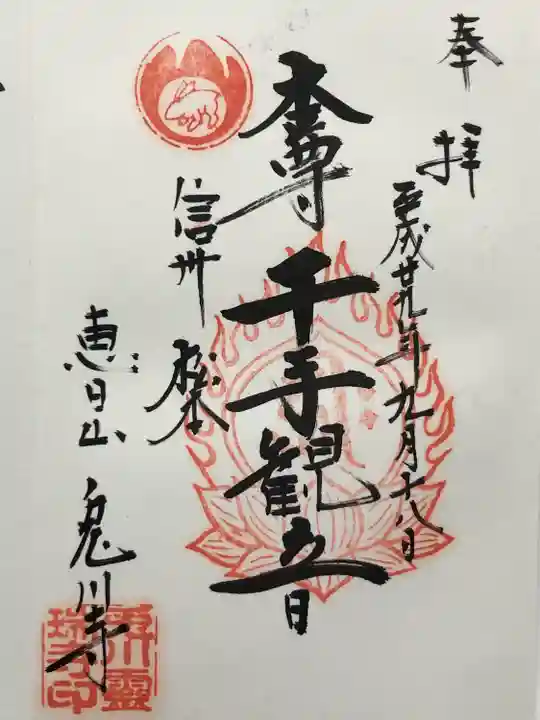 奉拝
平成廿九年九月十八日
本尊
千手観音
信州
松本
恵日山
兎川寺